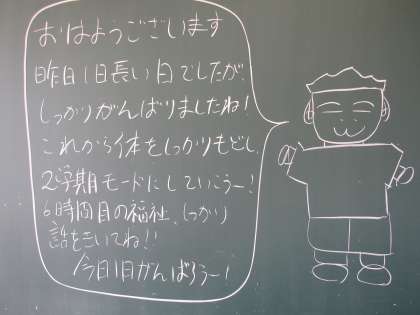 おはようございます
昨日1日長い日でしたが、
しっかりがんばりましたね!
これから体をしっかりもどし、
2学期モードにしていこう-!
6時間目の福祉、しっかり
話をきいてね!!
今日1日がんばろう-!